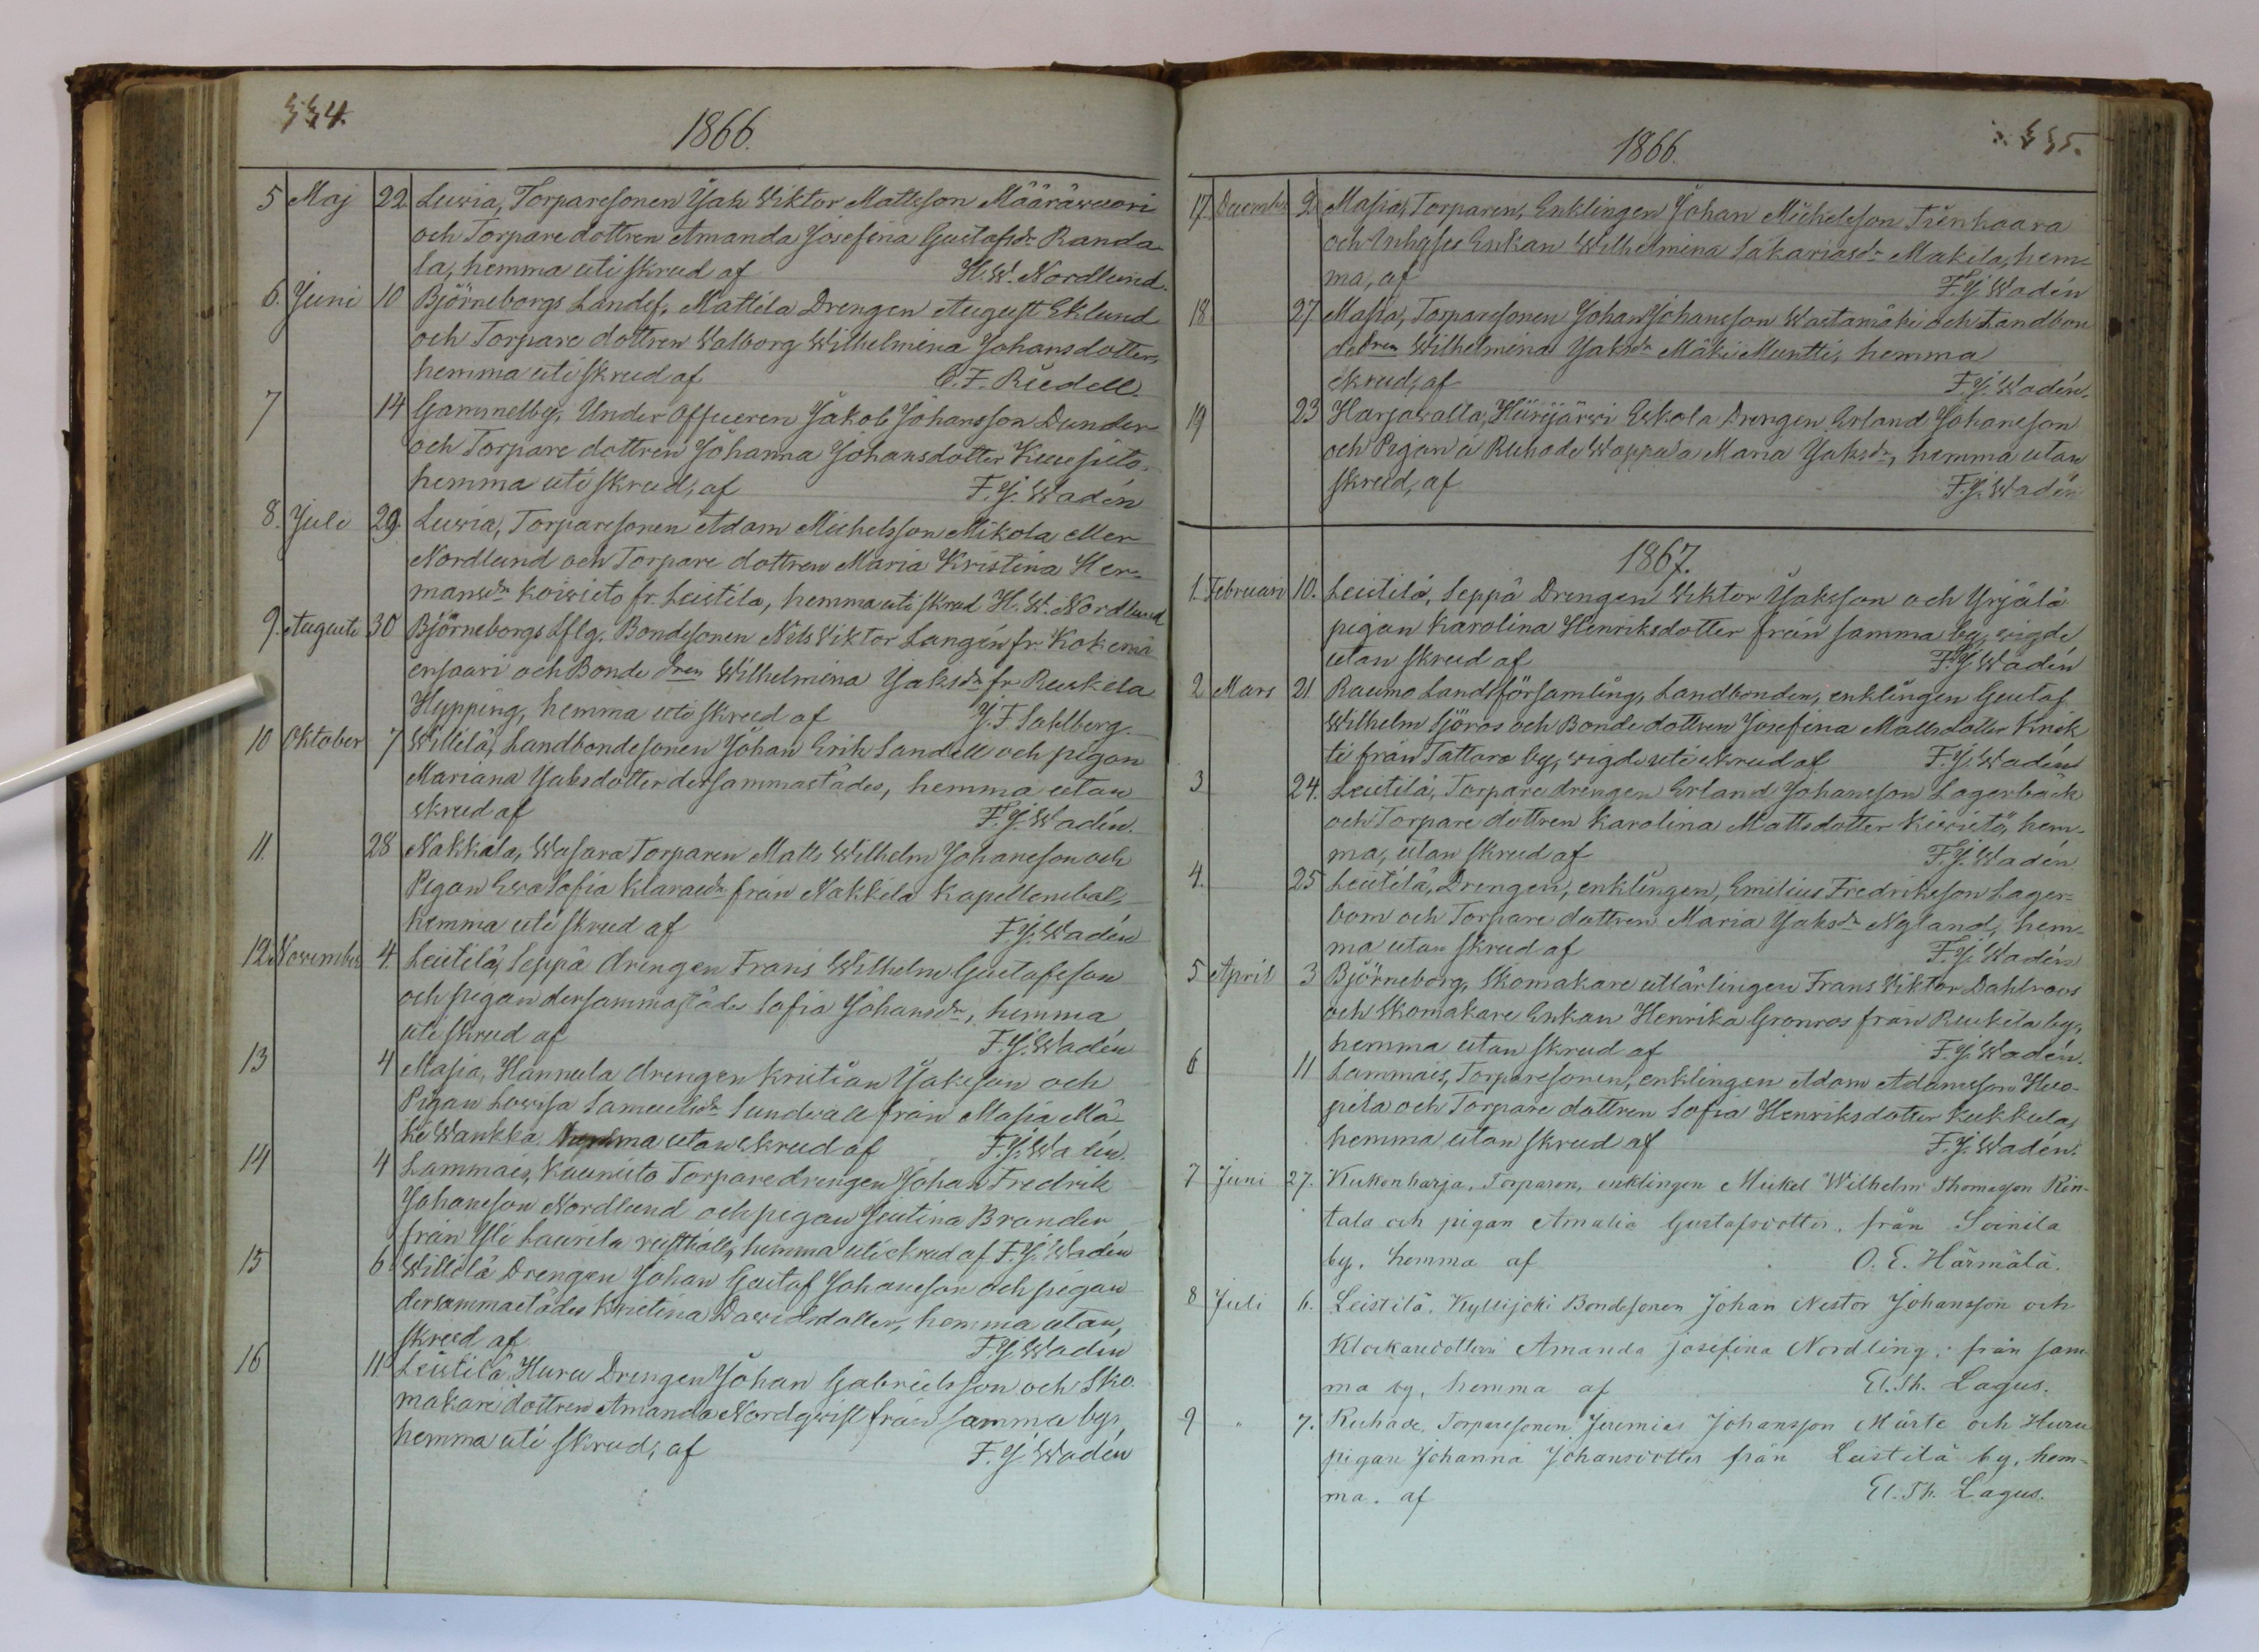 334.
1866.
5 Maj 22. Luvia, Torparesonen Jak Wiktor Mattsson Määräwuori
och Torpare dottren Amanda Josefina Gustafsdr Randa-
la, hemma uti skrud af H. W. Nordlund.
6. Juni 10 Björneborgs Landsf. Mattila Drengen August Eklund
och Torpare dottren Walborg Wilhelmina Johansdotter,
hemma uti skrud af C. F. Riedell.
7 14 Gammelby, Under Officeren Jakob Johansson Dunder
och Torpare dottren Johanna Johansdotter
hemma uti skrud, af F. J. Wadén
8. Juli 29. Luvia, Torparesonen Adam Michelsson Mikola eller
Nordlund och Torpare dottren Maria Kristina Her-
mansdr Koivisto fr. Leistila, hemma uti skrud H. W. Nordlund
9. Augusti 30 Björneborgs Lflg. Bondesonen Nils Wiktor Langén fr. Kokemä
ensaari och Bonde dren Wilhelmina Jaksdr fr Ruskela
Hypping, hemma uti skrud af J. F. Sahlberg.
10 Oktober 7 Willilä, Landbondesonen Johan Erik Sandell och pigan
Mariana Jaksdotter dersammastädes, hemma utan
skrud af F. J. Wadén.
11. 28 Nakkala, Wasara Torparen Matts Wilhelm Johansson och
Pigan Ewa Sofia Klarasdr från Nakkila Kapellansbol,
hemma uti skrud af F. J. Wadén
12. November 4. Leistilä, Seppä drengen Frans Wilhelm Gustafsson
och pigan dersammastädes Sofia Johansdr, hemma
uti skrud af F. J. Wadén
13 4 Masia, Hannula drengen Kristian Jaksson och
Pigan Lovisa Samuelsdr Sundvall från Masia Mä-
ki Wankka hemma utan skrud af F. J. Wadén.
14 4 Lammais, Kuunisto Torparedrengen Johan Fredrik
Johansson Nordlund och pigan Justina Brander
från Yli Laurila rusthåll, hemma uti skrud af F. J. Wadén
15 6. Willilä Drengen Johan Gustaf Johansson och pigan
dersammastädes Kristina Davidsdotter, hemma utan,
skrud af F. J. Wadén
16 11. Leistilä, Huru Drengen Johan Gabrielsson och Sko-
makare dottren Amanda Nordqvist från samma by,
hemma uti skrud, af F. J. Wadén
335.
1866.
17. December 9. Masia, Torparen, Enklingen Johan Michelsson Tienhaara
och Inhyses Enkan Wilhelmina Sakariasdr Makila, hem-
ma, af F. J. Wadén
18 27 Masia, Torparesonen Johan Johansson Wastamäki och Landbon
dedren Wilhelmina Jaksdr Mäki Muntti, hemma
skrud, af F. J. Wadén.
19 23 Harjavalta, Hiirijärvi Eskola Drengen Erland Johansson
och Pigan å Ruhade Maria Jaksdr, hemma utan
skrud, af F. J. Wadén
1867.
1. Februari 10. Leistilä, Seppä Drengen Wiktor Jaksson och Yrjälä
pigan Karolina Henriksdotter från samma by, vigde
utan skrud af F. J. Wadén
2 Mars 21. Raumo Landsförsamling, Landbonden, enklingen Gustaf
Wilhelm Sjöros och Bonde dottren Josefina Mattsdotter Knik
ti från Tattara by, vigde uti skrud af F. J. Wadén
3 24. Leistilä, Torpare drengen Erland Johansson Lagerbäck
och Torpare dottren Karolina Mattsdotter Kivistö, hem-
ma, utan skrud af F. J. Wadén
4. 25 Leistilä, Drengen, enklingen, Emilius Fredriksson Lager-
bom och Torpare dottren Maria Jaksdr Nyland, hem-
ma utan skrud af F. J. Wadén
5 April 3 Björneborg, Skomakare utlärlingen Frans Wiktor Dahlroos
och Skomakare Enkan Henrika Grönros från Ruskila by,
hemma utan skrud af F. J. Wadén.
6 11 Lammais, Torparesonen, enklingen Adam Adamsson Huo-
pila och Torpare dottren Sofia Henriksdotter Kukkula,
hemma utan skrud af F. J. Wadén.
7 Juni 27. Kukonharja, Torparen, enklingen Mickel Wilhelm Thomasson Rin-
tala och pigan Amalia Gustafsdotter, från Soinila
by, hemma af O. E. Härmälä.
8 Juli 6. Leistilä, Kyllijoki Bondesonen Johan Nestor Johansson och
Klockaredottren Amanda Josefina Nordling, från sam-
ma by, hemma af El. Th. Lagus.
9 " 7. Ruhade, Torparesonen Jeremias Johansson Märte och Huru
pigan Johanna Johansdotter från Leistilä by, hem-
ma, af El. Th. Lagus.